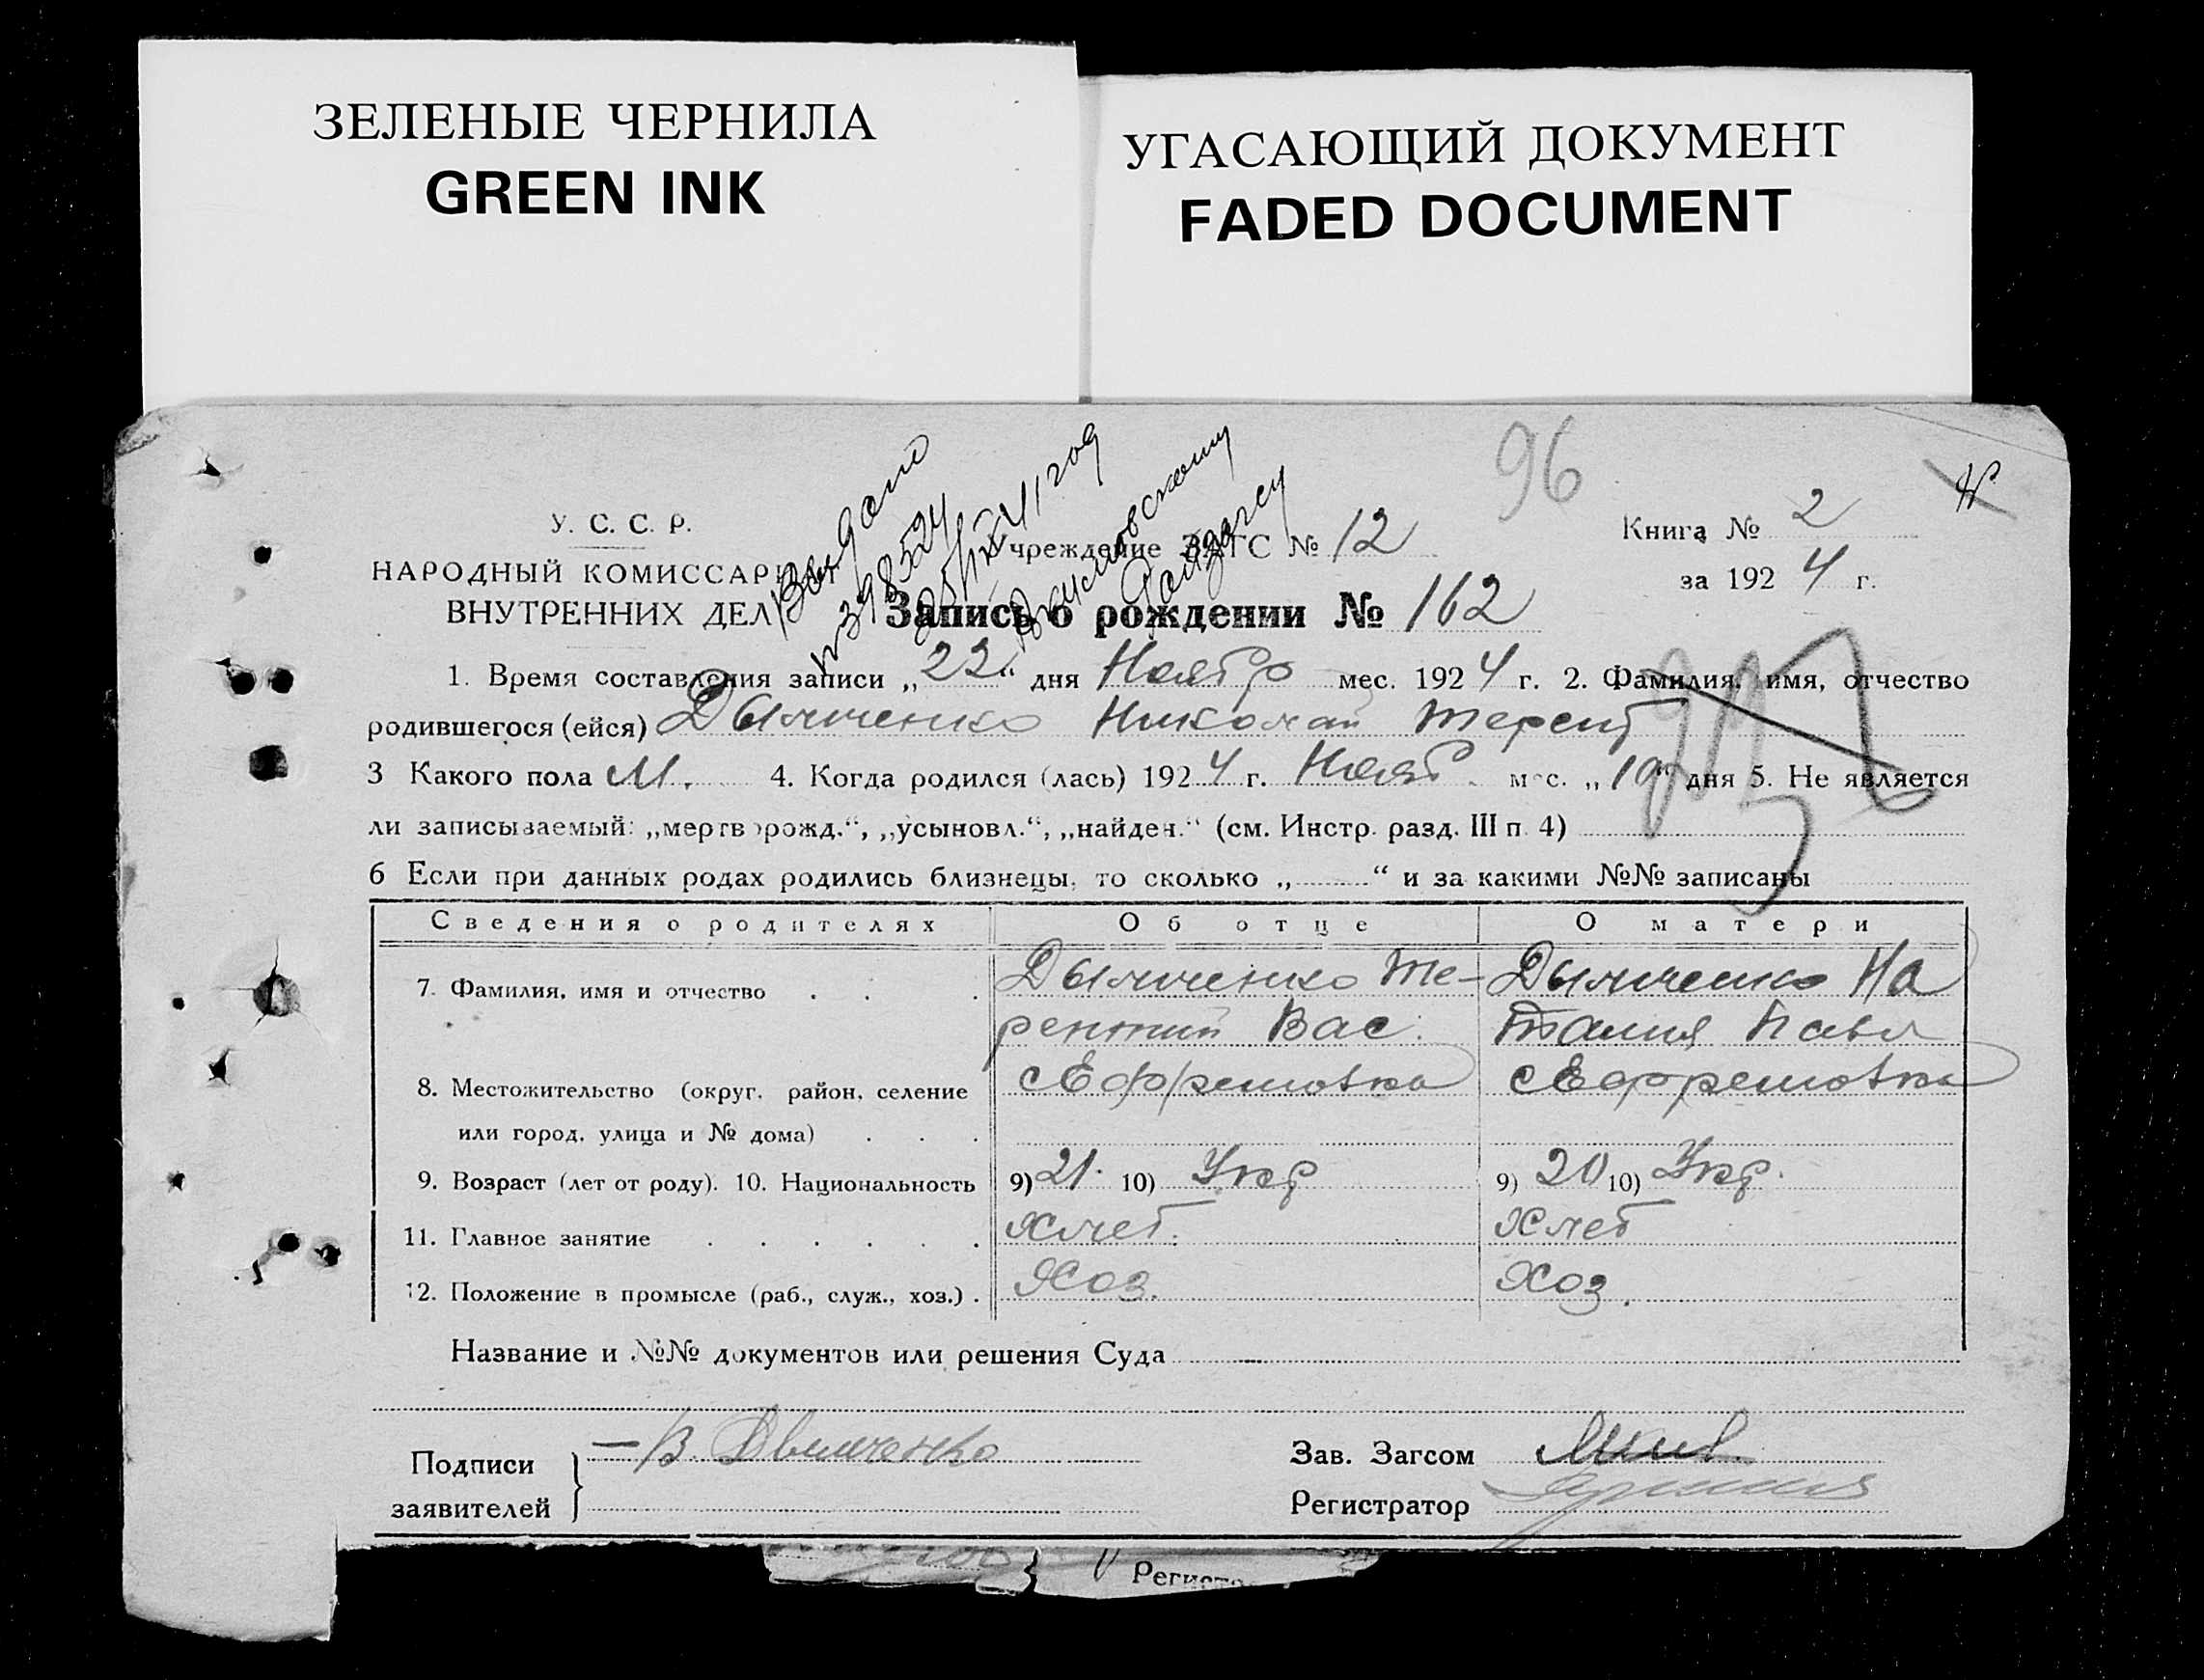 ЗЕЛЕНЫЕ ЧЕРНИЛА
GREEN INK
УГАСАЮЩИЙ ДОКУМЕНТ
FADED DOCUMENT
96
У. С. С. Р.
НАРОДНЫЙ КОМИССАРИАТ
ВНУТРЕННИХ ДЕЛ
Выдано
398524
год
Учреждение ЗАГС № 12
Книга № 2
за 1924 г.
Запись о рождении № 162
1. Время составления записи „22“ дня Ноябр мес. 1924 г. 2. Фамилия, имя, отчество
родившегося (ейся) Дымченко Николай Терент
3 Какого пола М. 4. Когда родился (лась) 1924 г. Нояб. мес. „19“ дня 5. Не является
ли записываемый: „мертворожд.“, „усыновл.“, „найден.“ (см. Инстр. разд. III п. 4)
6 Если при данных родах родились близнецы, то сколько „ “ и за какими №№ записаны
Сведения о родителях Об отце О матери
7. Фамилия, имя и отчество Дымченко Те- Дымченко На
рентий Вас. талия Павл
8. Местожительство (округ, район, селение с Ефремовка с Ефремовка
или город, улица и № дома)
9. Возраст (лет от роду). 10. Национальность 9) 21. 10) Укр 9) 20 10) Укр.
11. Главное занятие Хлеб. Хлеб
12. Положение в промысле (раб., служ., хоз.) Хоз. Хоз.
Название и №№ документов или решения Суда
Подписи
заявителей
В. Дымченко
Зав. Загсом
Регистратор